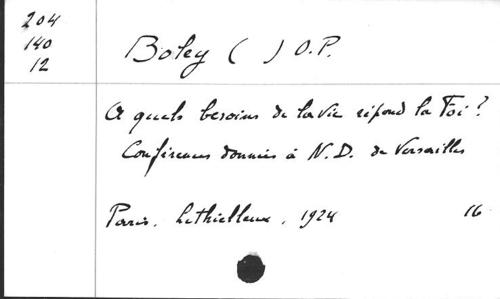 204
140
12
Boley ( ) O.P.
A quels besoins de la vie répond la Foi ?
Conférences données à N. D. de Versailles
Paris, Lethielleux, 1924 16